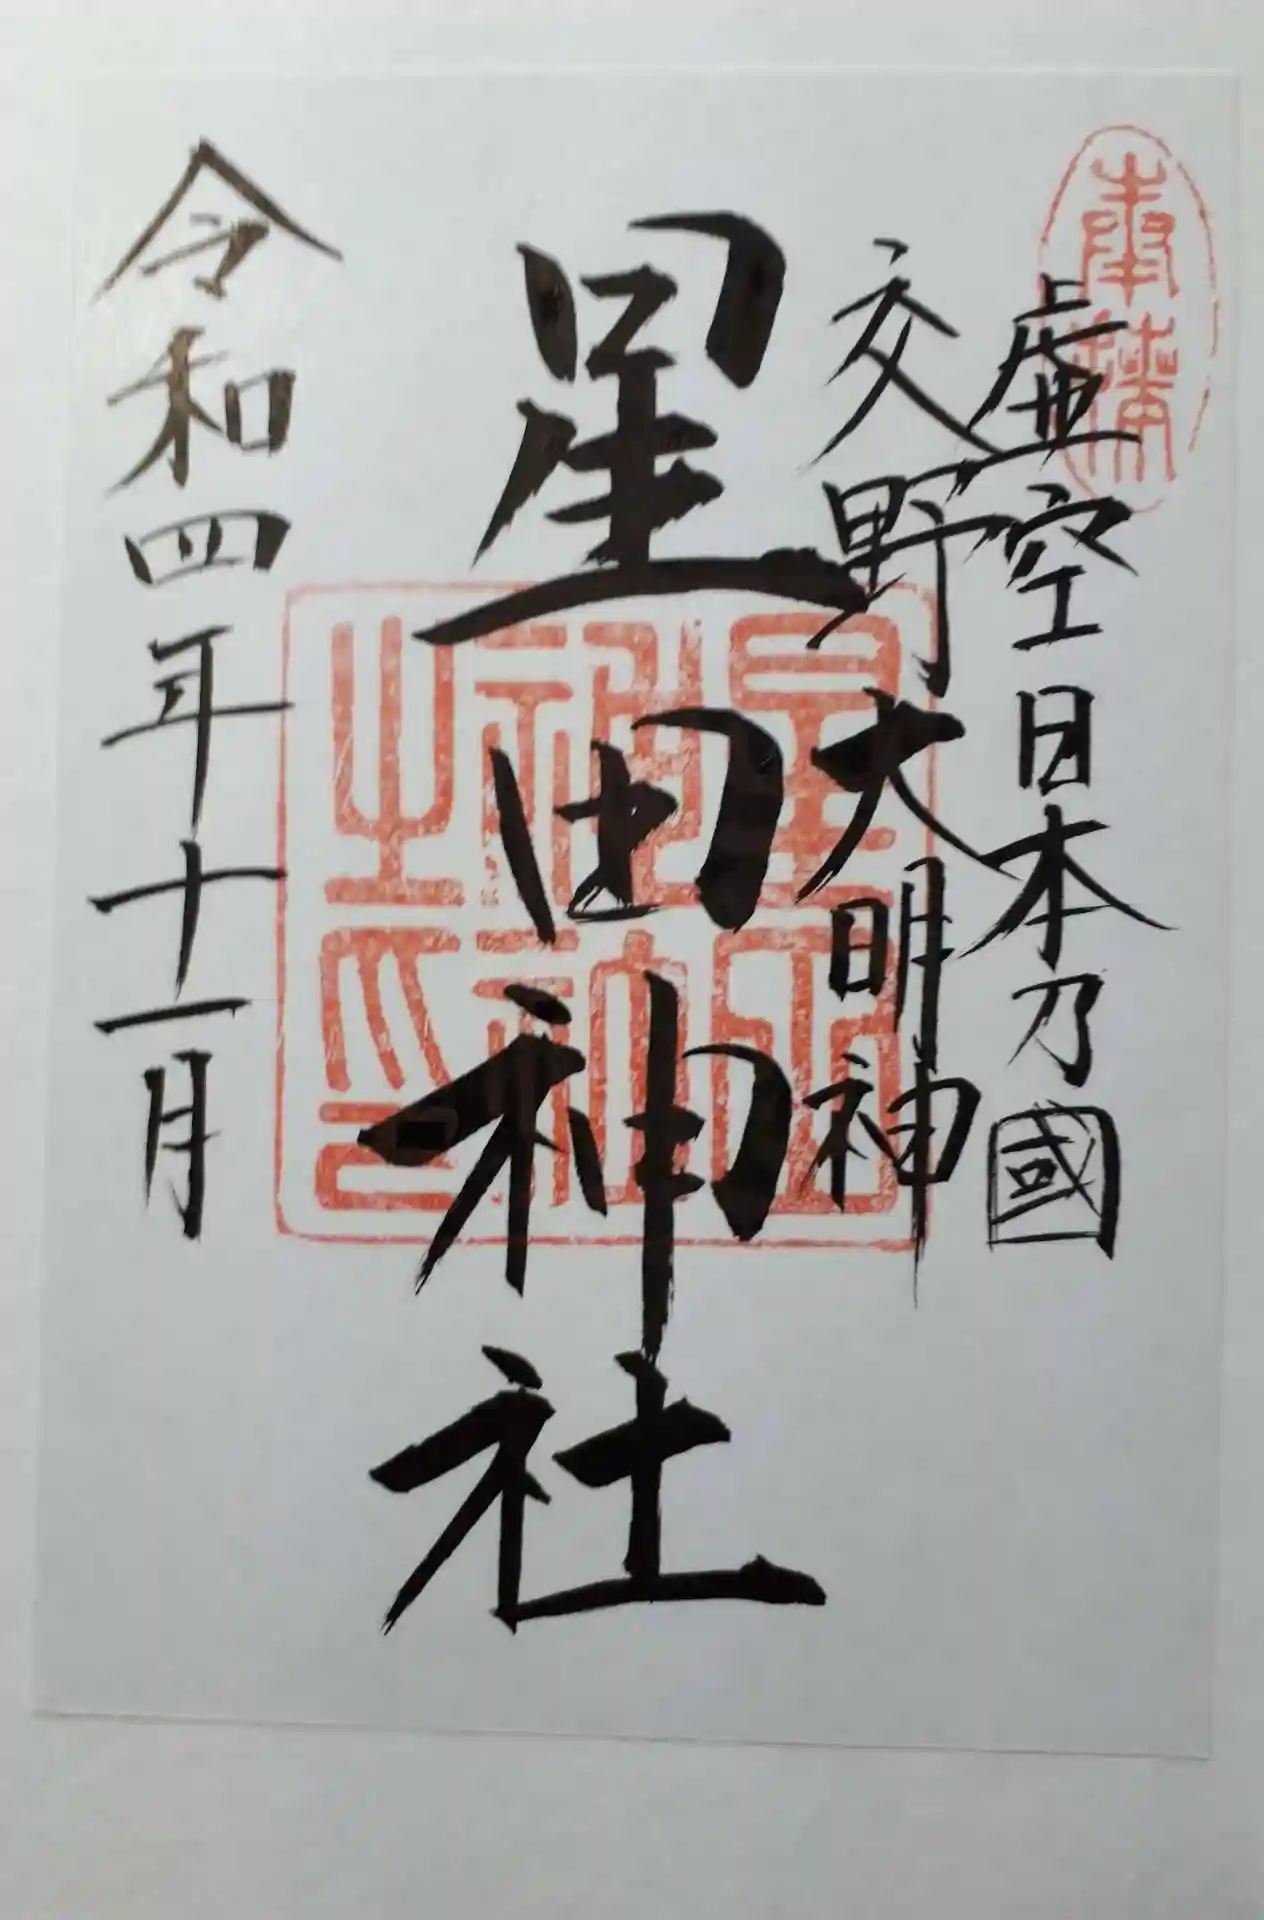 奉拝
虚空日本乃國
交野大明神
星田神社
星田神社之印
令和四年十一月